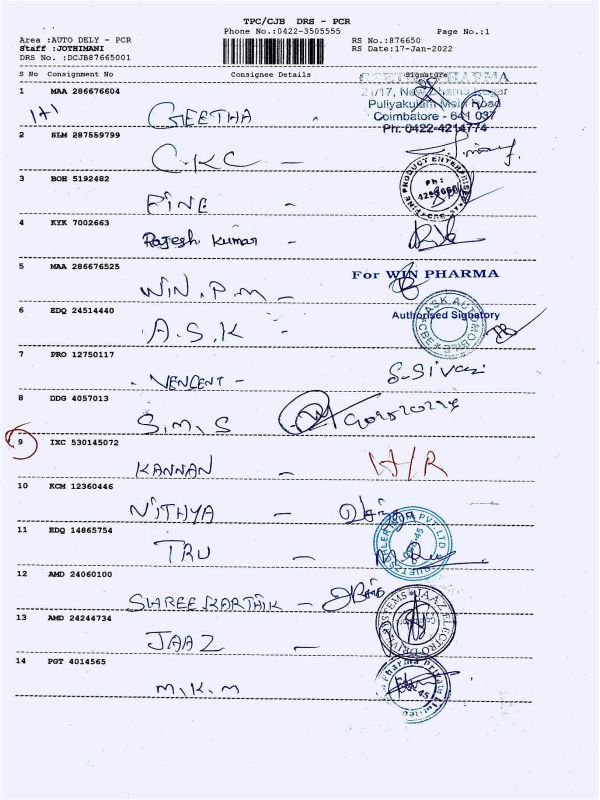 TPC/CJB DRS - PCR
Phone No.:0422-3505555 Page No.:1
Area :AUTO DELY - PCR RS No.:876650
Staff :JOTHIMANI RS Date:17-Jan-2022
DRS No. :DCJB87665001
S No Consignment No Consignee Details Signature
1 MAA 286676604
GEETHA
PHARMA
21/17, New
Puliyakulam Main Road
Coimbatore - 641 037
Ph: 0422-4214774
2 SLM 287559799
C.K.C -
3 BOH 5192482
PINE -
FINE PRODUCT ENTERPRISES
Ph :
4 KYK 7002663
Rajesh Kumar -
5 MAA 286676525
For WIN PHARMA
WIN.P.M -
6 EDQ 24514440
Authorised Signatory
A.S.K -
ASK AUTOMOBILES
CBE
7 PRO 12750117
- VENCENT - S-Siva
8 DDG 4057013
S.M.S
9 IXC 530145072
KANNAN - H/R
10 KCM 12360446
NITHYA -
11 EDQ 14865754
PVT.LTD
TRU -
12 AMD 24060100
SHREE KARTHIK -
13 AMD 24244734
JAAZ -
JAAZ ELECTRO DRIVE SYSTEMS
14 PGT 4014565
M.K.M
Pharma Private Limited